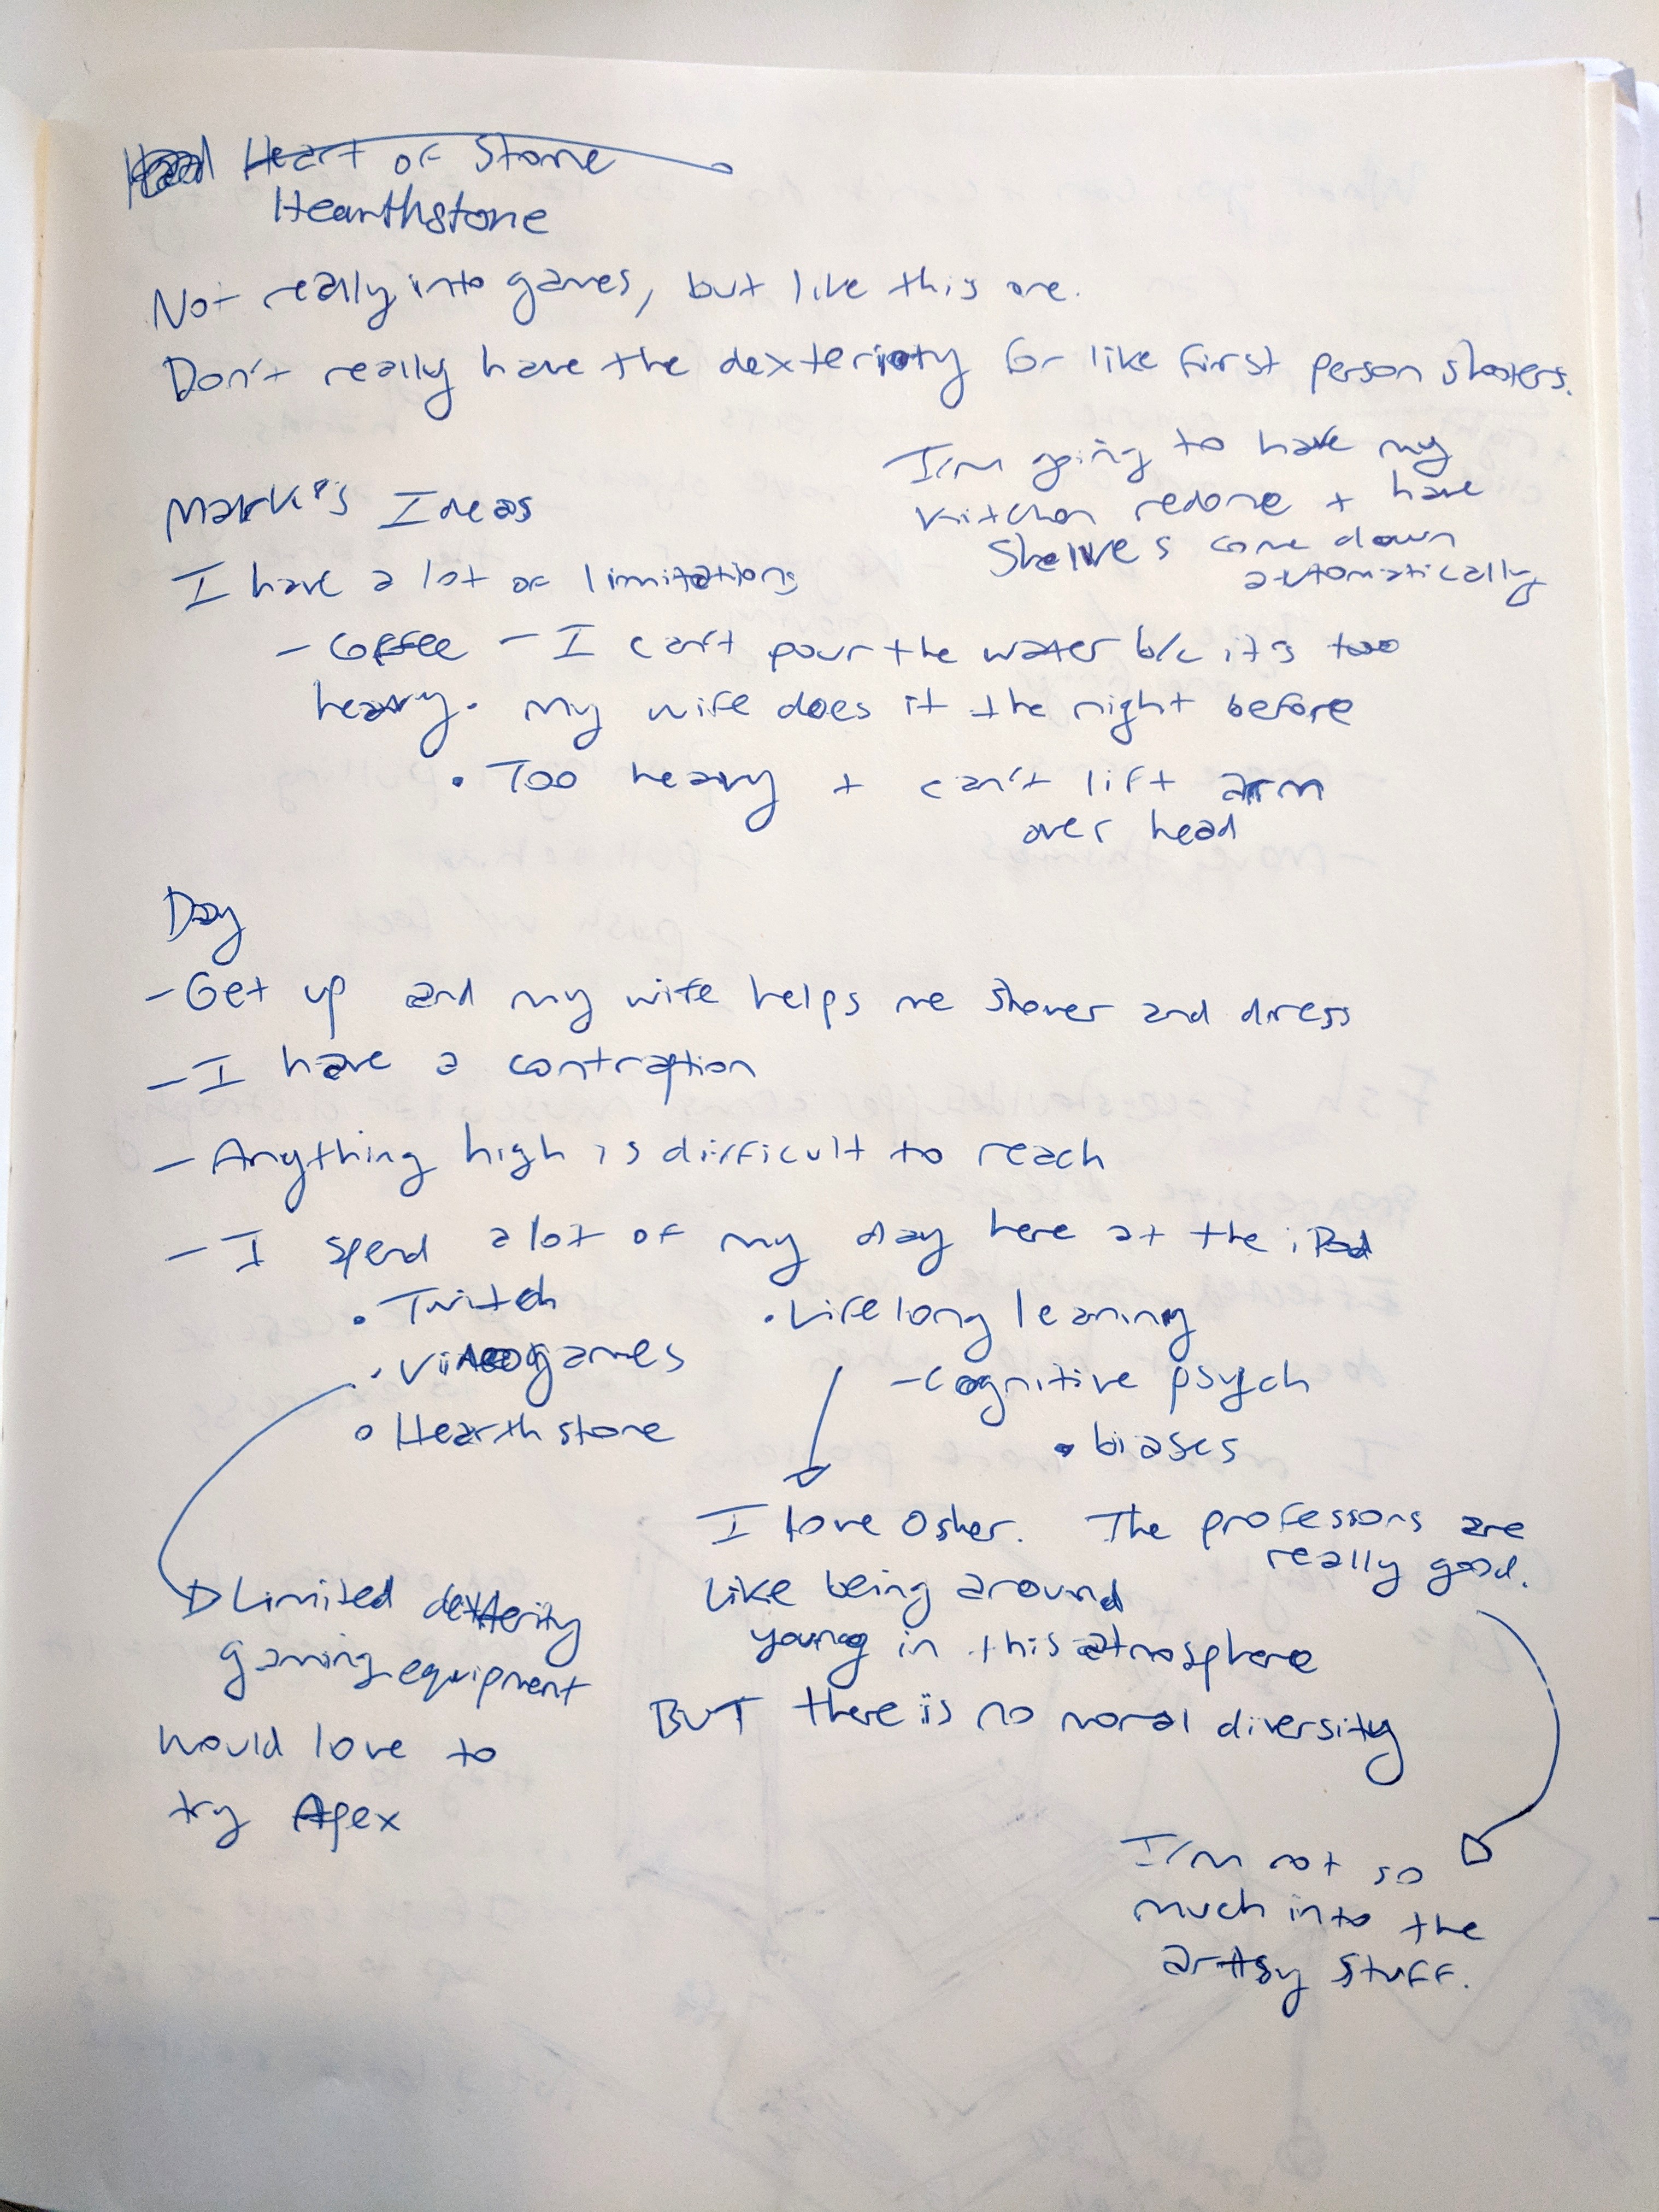 Heart of Stone
Hearthstone
Not really into games, but like this one.
Don't really have the dexterity for like first person shooters.
I'm going to have my
kitchen redone + have
Shelves come down
automatically
Mark's Ideas
I have a lot of limitations
- Coffee - I can't pour the water b/c it's too
heavy. My wife does it the night before
• Too heavy + can't lift arm
over head
Day
- Get up and my wife helps me shower and dress
- I have a contraption
- Anything high is difficult to reach
- I spend a lot of my day here at the iPad
• Twitch
• Videogames
• Hearthstone
• Lifelong leaning
- Cognitive psych
• biases
I love Osher. The professors are
really good.
Like being around
young in this atmosphere
BUT there is no moral diversity
I'm not so
much into the
artsy stuff.
Limited dexterity
gaming equipment
would love to
try Apex